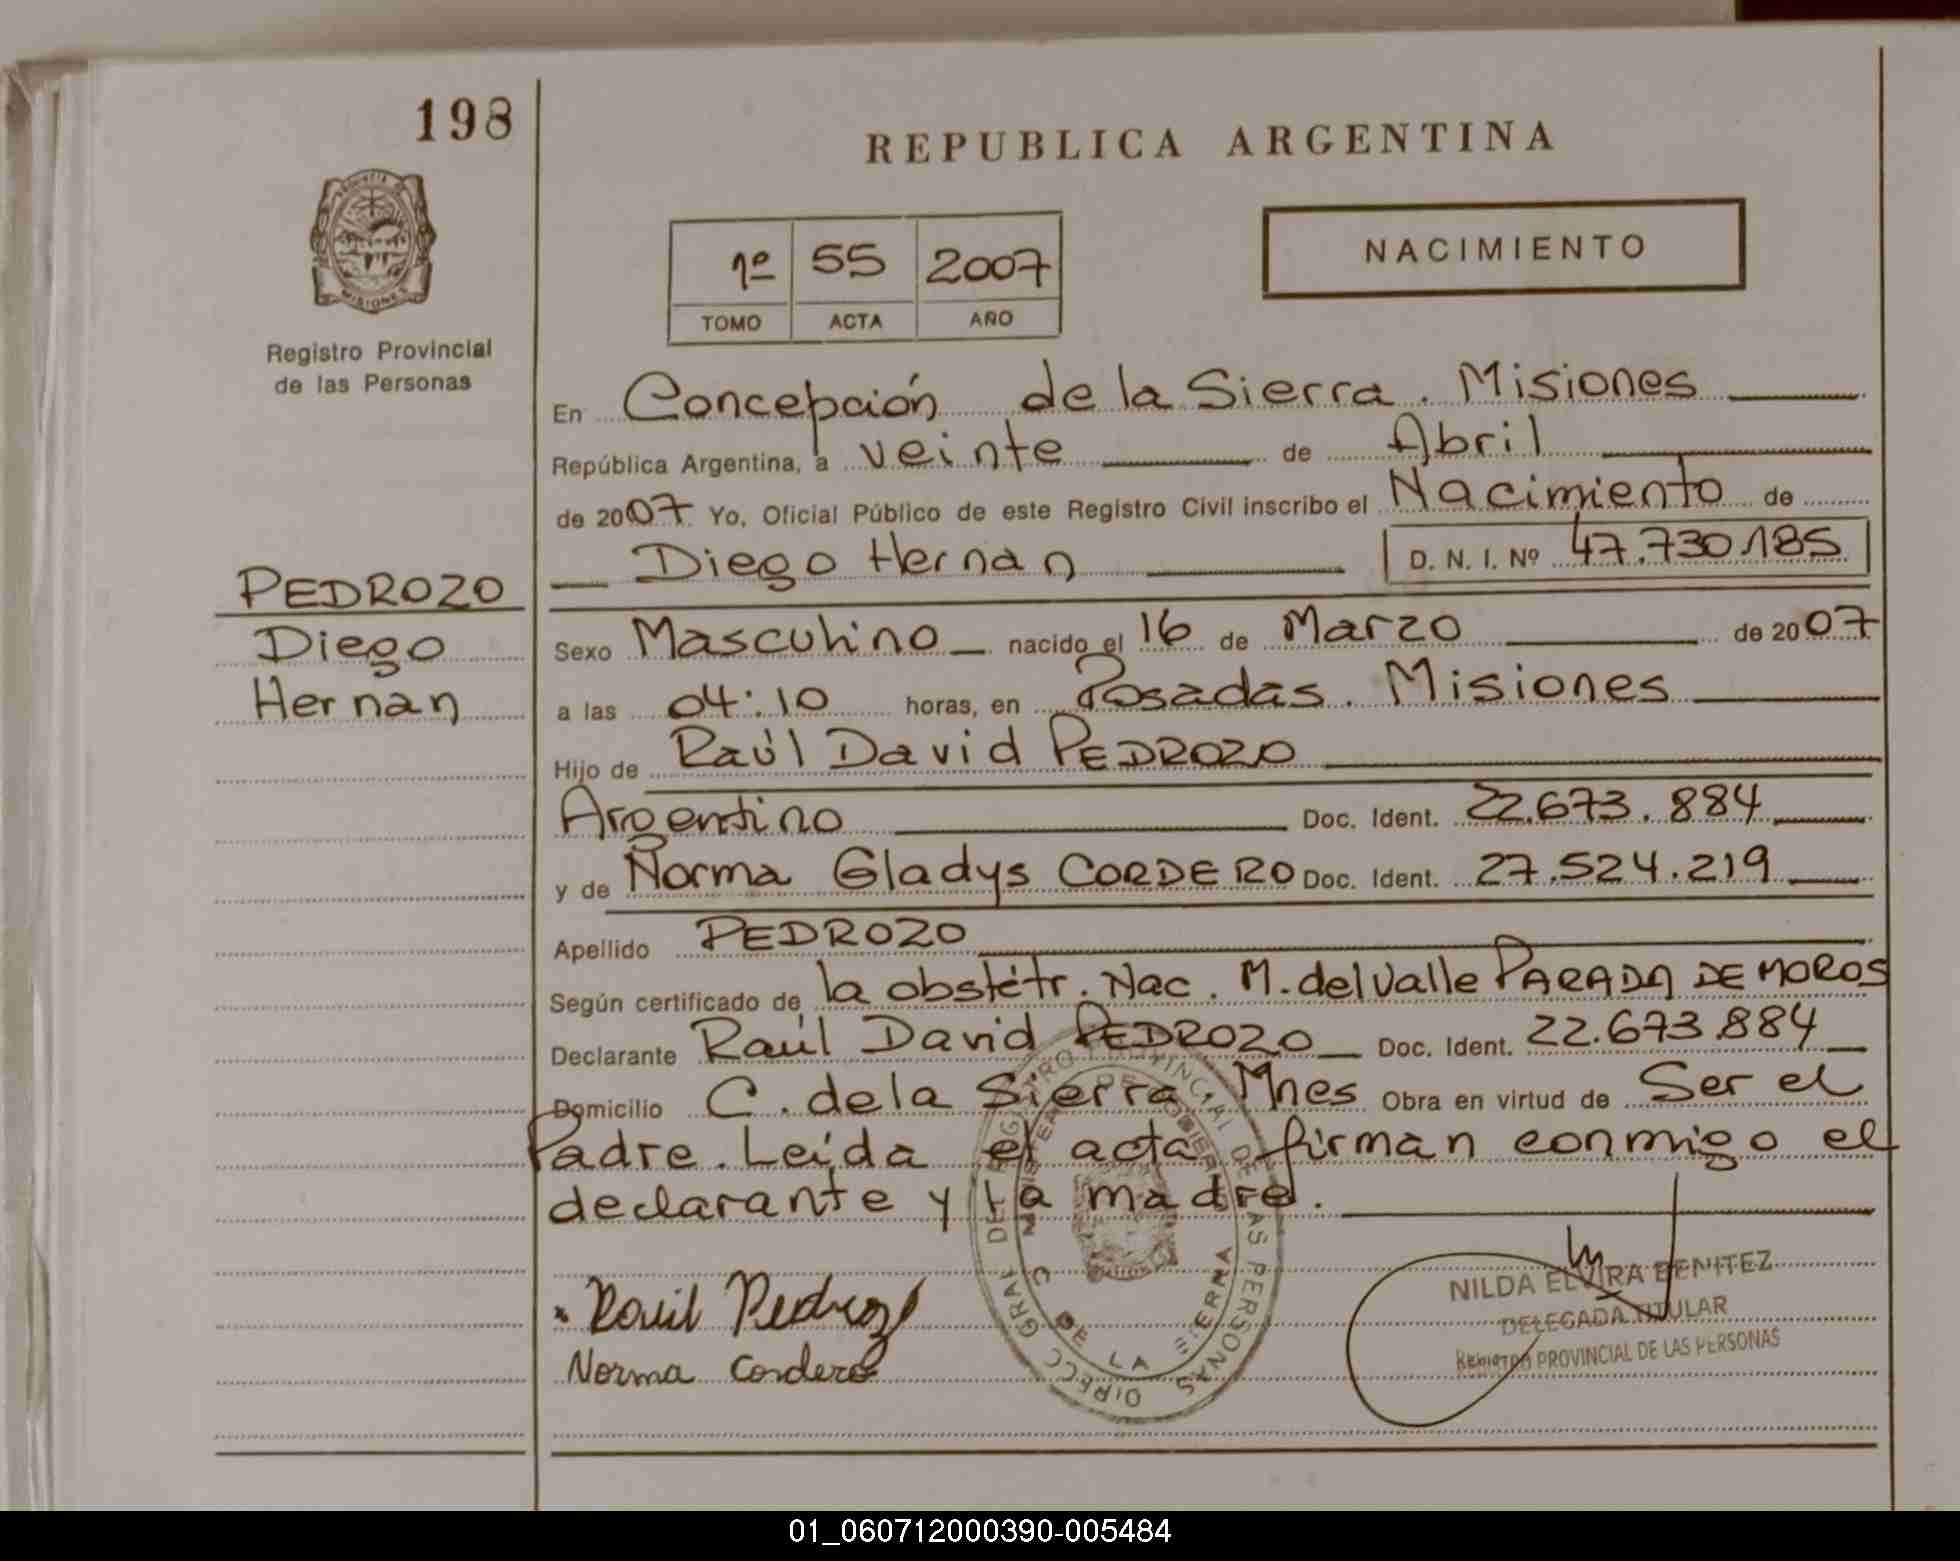 198
REPUBLICA ARGENTINA
PROVINCIA DE
MISIONES
Registro Provincial
de las Personas
1º 55 2007
TOMO ACTA AÑO
NACIMIENTO
En Concepción de la Sierra. Misiones
República Argentina, a veinte de Abril
de 2007 Yo, Oficial Público de este Registro Civil inscribo el Nacimiento de
Diego Hernan D. N. I. Nº 47.730.185
PEDROZO
Diego
Hernan
Sexo Masculino nacido el 16 de Marzo de 2007
a las 04:10 horas, en Posadas. Misiones
Hijo de Raúl David PEDROZO
Argentino Doc. Ident. 22.673.884
y de Norma Gladys CORDERO Doc. Ident. 27.524.219
Apellido PEDROZO
Según certificado de la obstétr. Nac. M. del Valle PARADA DE MOROS
Declarante Raúl David PEDROZO Doc. Ident. 22.673.884
Domicilio C. de la Sierra, Mnes Obra en virtud de Ser el
Padre. Leída el acta, firman conmigo el
declarante y la madre.
Raúl Pedrozo
Norma Cordero
DIRECC GRAL DEL REGISTRO PROVINCIAL DE LAS PERSONAS
MINISTERIO DE GOBIERNO
C DE LA SIERRA
NILDA ELVIRA BENITEZ
DELEGADA TITULAR
REGISTRO PROVINCIAL DE LAS PERSONAS
01_060712000390-005484